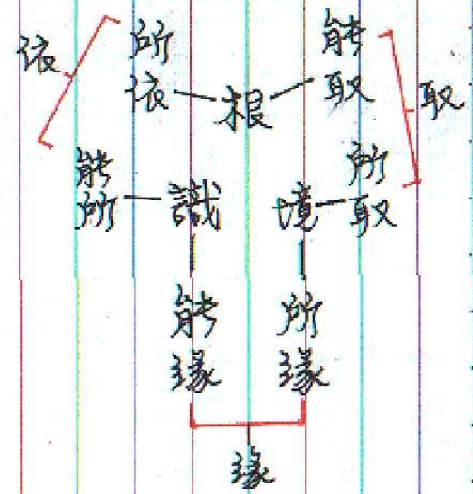 依
所依
根
能取
取
能所
識
境
所取
能緣
所緣
緣